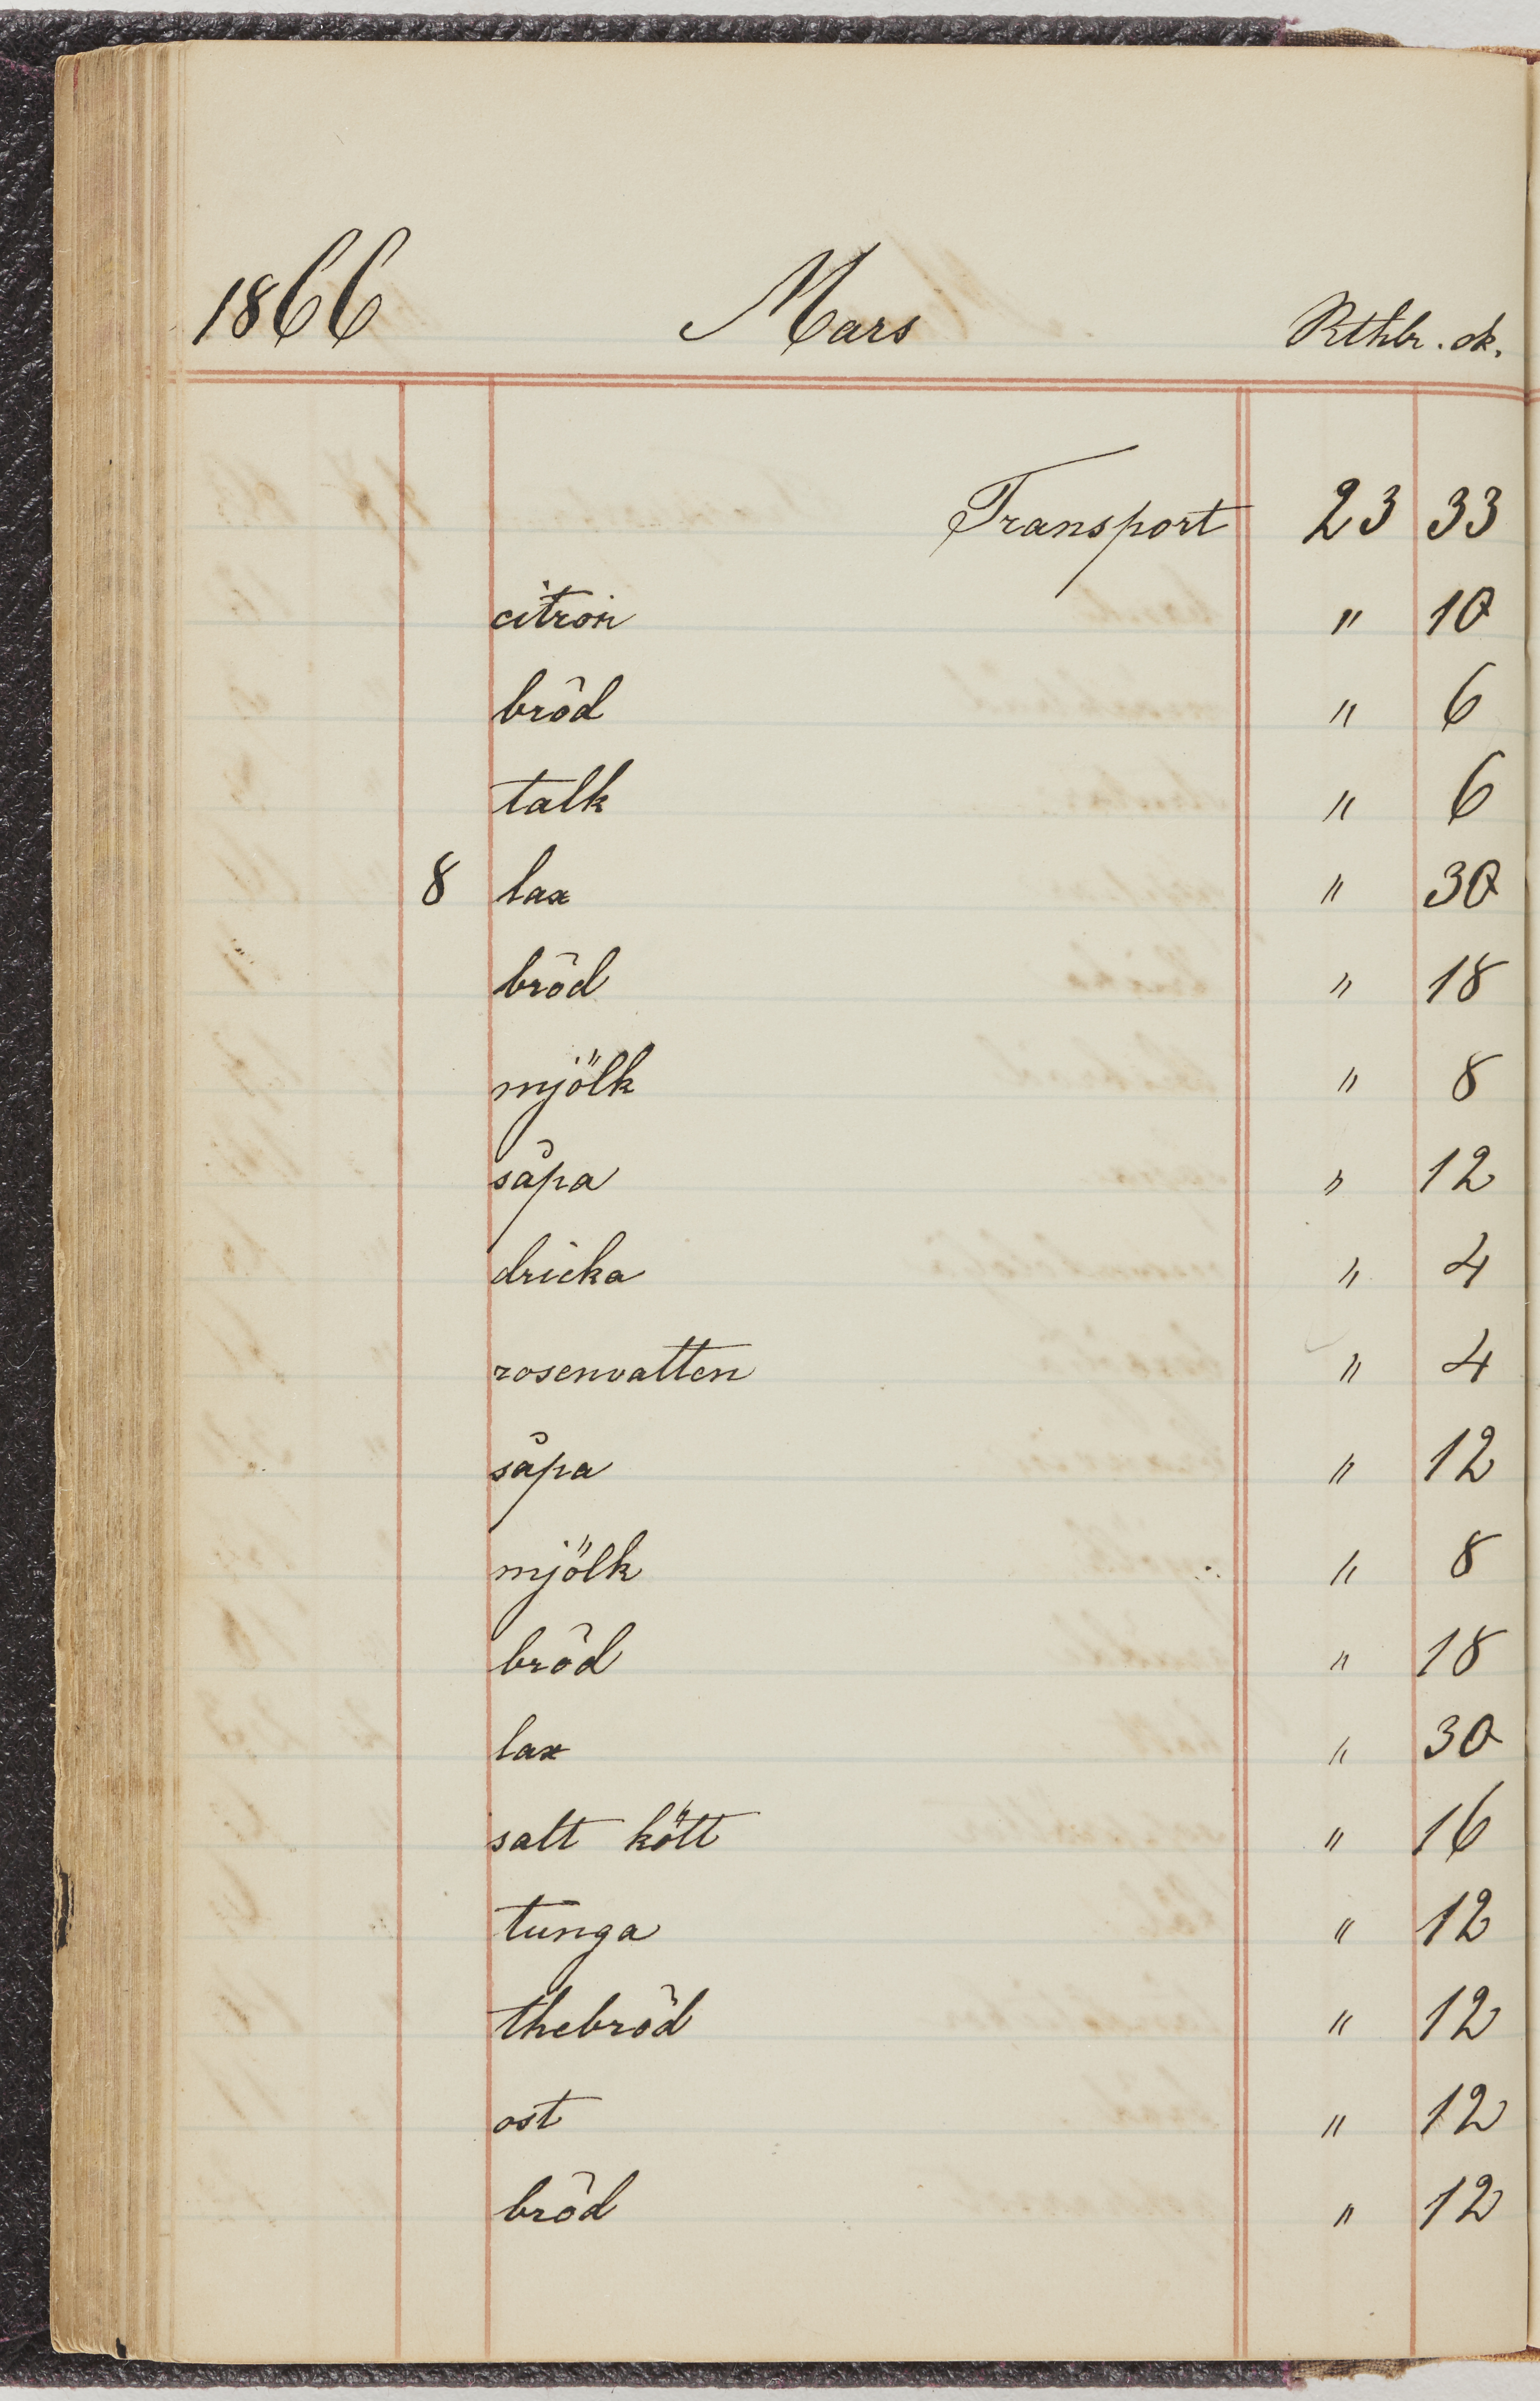 1866 Mars Rthlr. sk.
Transport 23 33
citron " 10
bröd " 6
talk " 6
8 lax " 30
bröd " 18
mjölk " 8
såpa " 12
dricka " 4
rosenvatten " 4
såpa " 12
mjölk " 8
bröd " 18
lax " 30
salt kött " 16
tunga " 12
thebröd " 12
ost " 12
bröd " 12